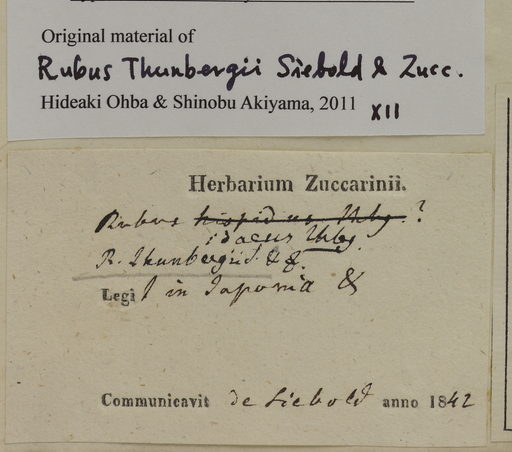 Original material of
Rubus Thunbergii Siebold & Zucc.
Hideaki Ohba & Shinobu Akiyama, 2011 XII
Herbarium Zuccarinii.
Rubus hispidus Thbg. ?
idaeus Thbg.
R. Thunbergii. S. & Z.
Legit in Japonia
Communicavit de Siebold anno 1842